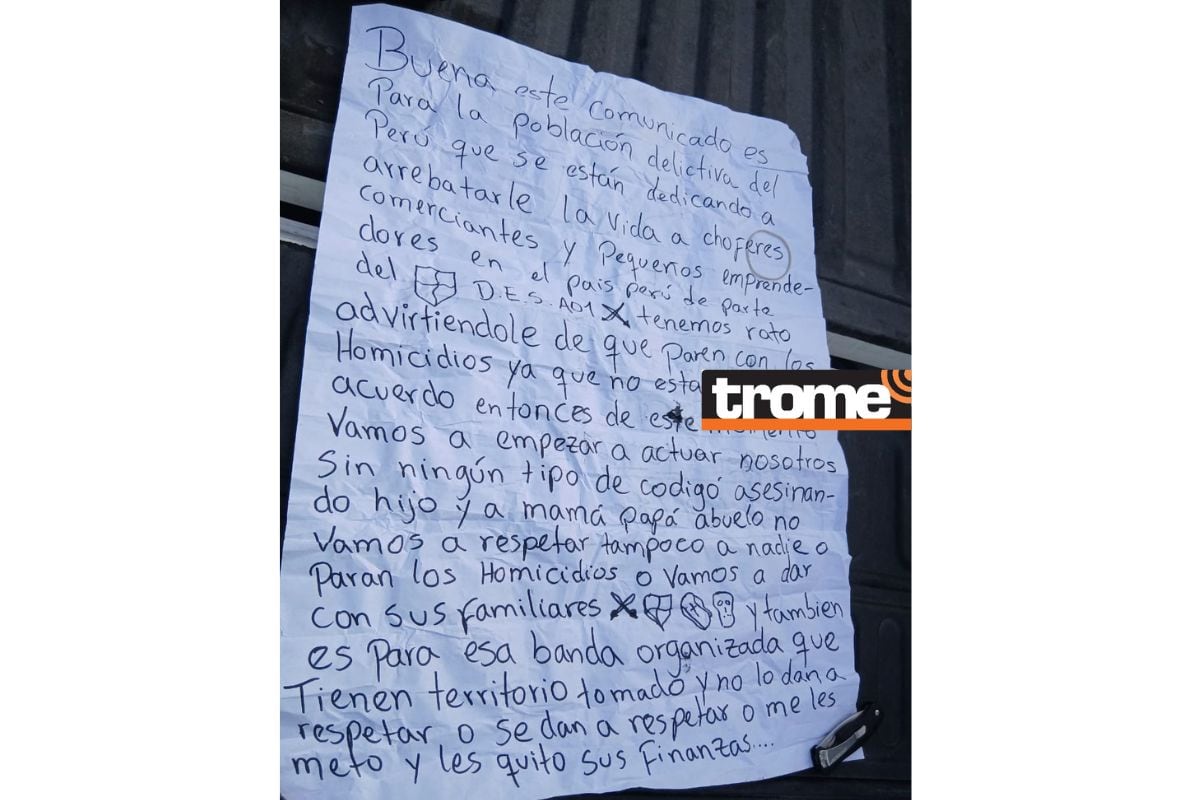 Buena este comunicado es
Para la población delictiva del
Perú que se están dedicando a
arrebatarle la vida a choferes
comerciantes y Pequeños emprende-
dores en el pais perú de parte
del D.E.S. A01 X tenemos rato
advirtiendole de que paren con los
Homicidios ya que no esta
acuerdo entonces de este momento
Vamos a empezar a actuar nosotros
Sin ningún tipo de codigó asesinan-
do hijo y a mamá papá abuelo no
Vamos a respetar tampoco a nadie o
Paran los Homicidios o Vamos a dar
con sus familiares X y tambien
es Para esa banda organizada que
Tienen territorio tomado y no lo dan a
respetar o se dan a respetar o me les
meto y les quito sus Finanzas....
trome